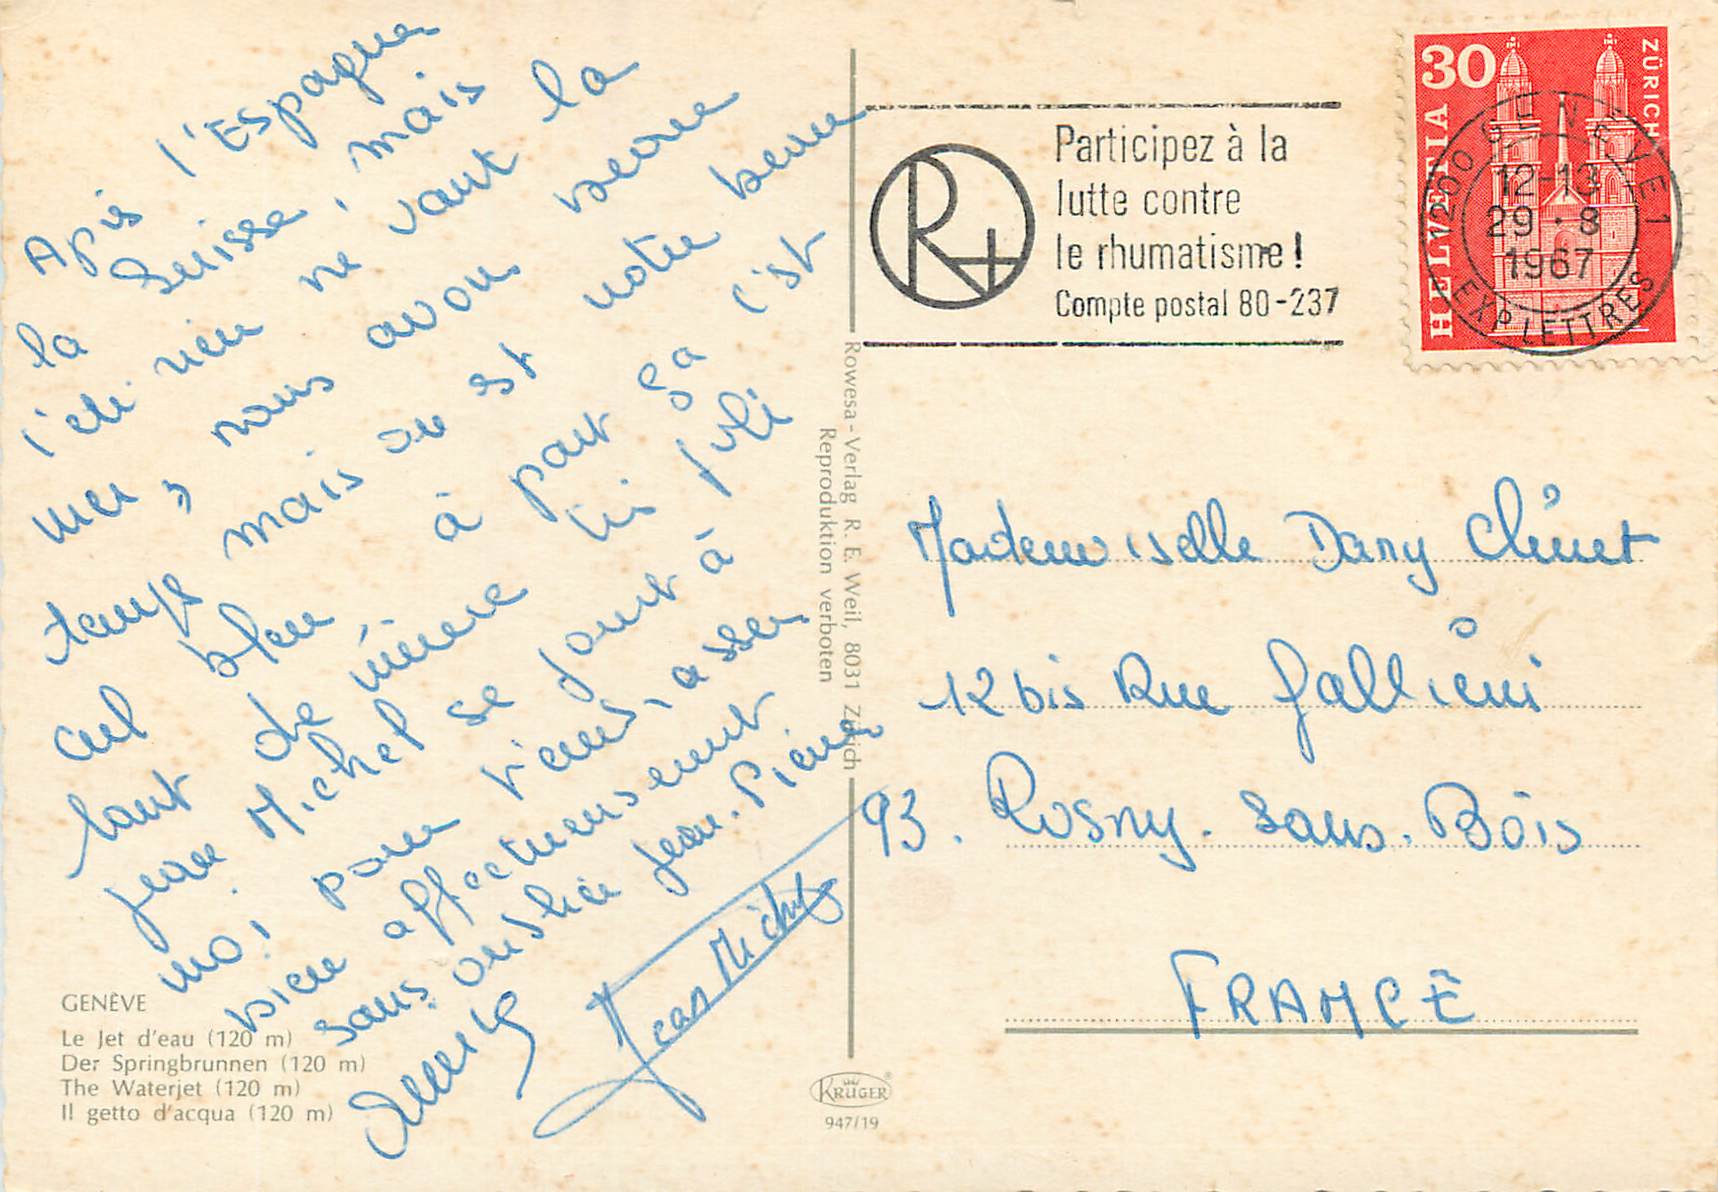 Après l'Espagne
la Suisse, mais
ici rien ne vaut la
mer, nous avons beau
temps mais où est notre beau
ciel bleu à part ça c'est
tout de même très joli
Jean Michel se joint à
moi pour t'embrasser
bien affectueusement
sans oublier Jean-Pierre
Jean Michel
GENÈVE
Le Jet d'eau (120 m)
Der Springbrunnen (120 m)
The Waterjet (120 m)
Il getto d'acqua (120 m)
Rowesa-Verlag R. E. Weil, 8031 Zürich
Reproduktion verboten
KRÜGER
947/19
Participez à la
lutte contre
le rhumatisme!
Compte postal 80-237
30
ZÜRICH
HELVETIA
1200 GENÈVE 1
12-13
29-8
1967
EXP. LETTRES
Mademoiselle Dany
12 bis Rue Galliéni
93. Rosny. sous. Bois
FRANCE